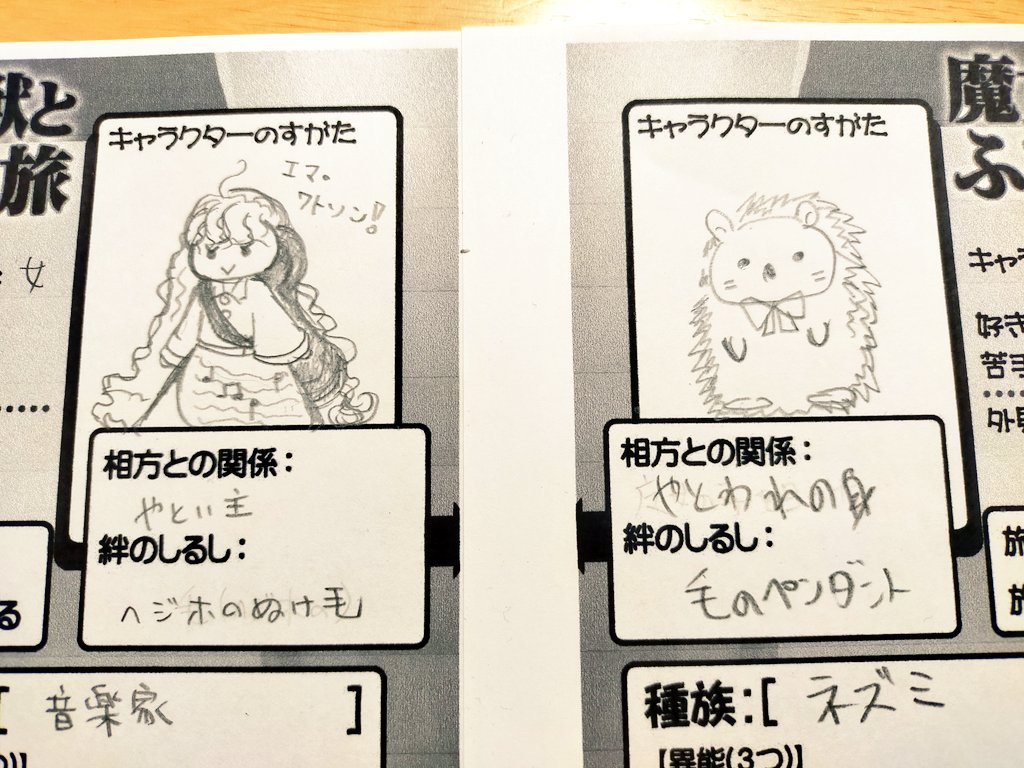 獣と
旅
女
キャラクターのすがた
エマ。
ワトソン!
相方との関係：
やとい主
絆のしるし：
ヘジホのぬけ毛
る
[ 音楽家 ]
キャラクターのすがた
相方との関係：
やとわれの身
絆のしるし：
毛のペンダント
種族：[ ネズミ
【異能(3つ)】
魔
ふ
キャラ
好き
苦手
外見
旅